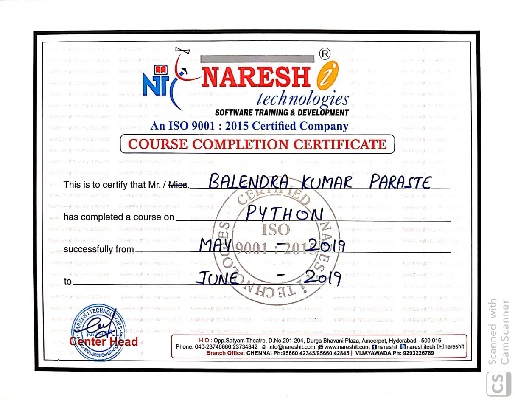 NT
NARESH i ®
technologies
SOFTWARE TRAINING & DEVELOPMENT
An ISO 9001 : 2015 Certified Company
COURSE COMPLETION CERTIFICATE
This is to certify that Mr. / Miss. BALENDRA KUMAR PARASTE
has completed a course on PYTHON
successfully from MAY - 2019
to JUNE - 2019
CERTIFIED NARESH i TECHNOLOGIES
ISO
9001 : 2015
Center Head
H.O : Opp.Satyam Theatre, D.No.201-204, Durga Bhavani Plaza, Ameerpet, Hyderabad - 500 016
Branch Office: CHENNAI,
VIJAYAWADA
Scanned with
CamScanner
CS